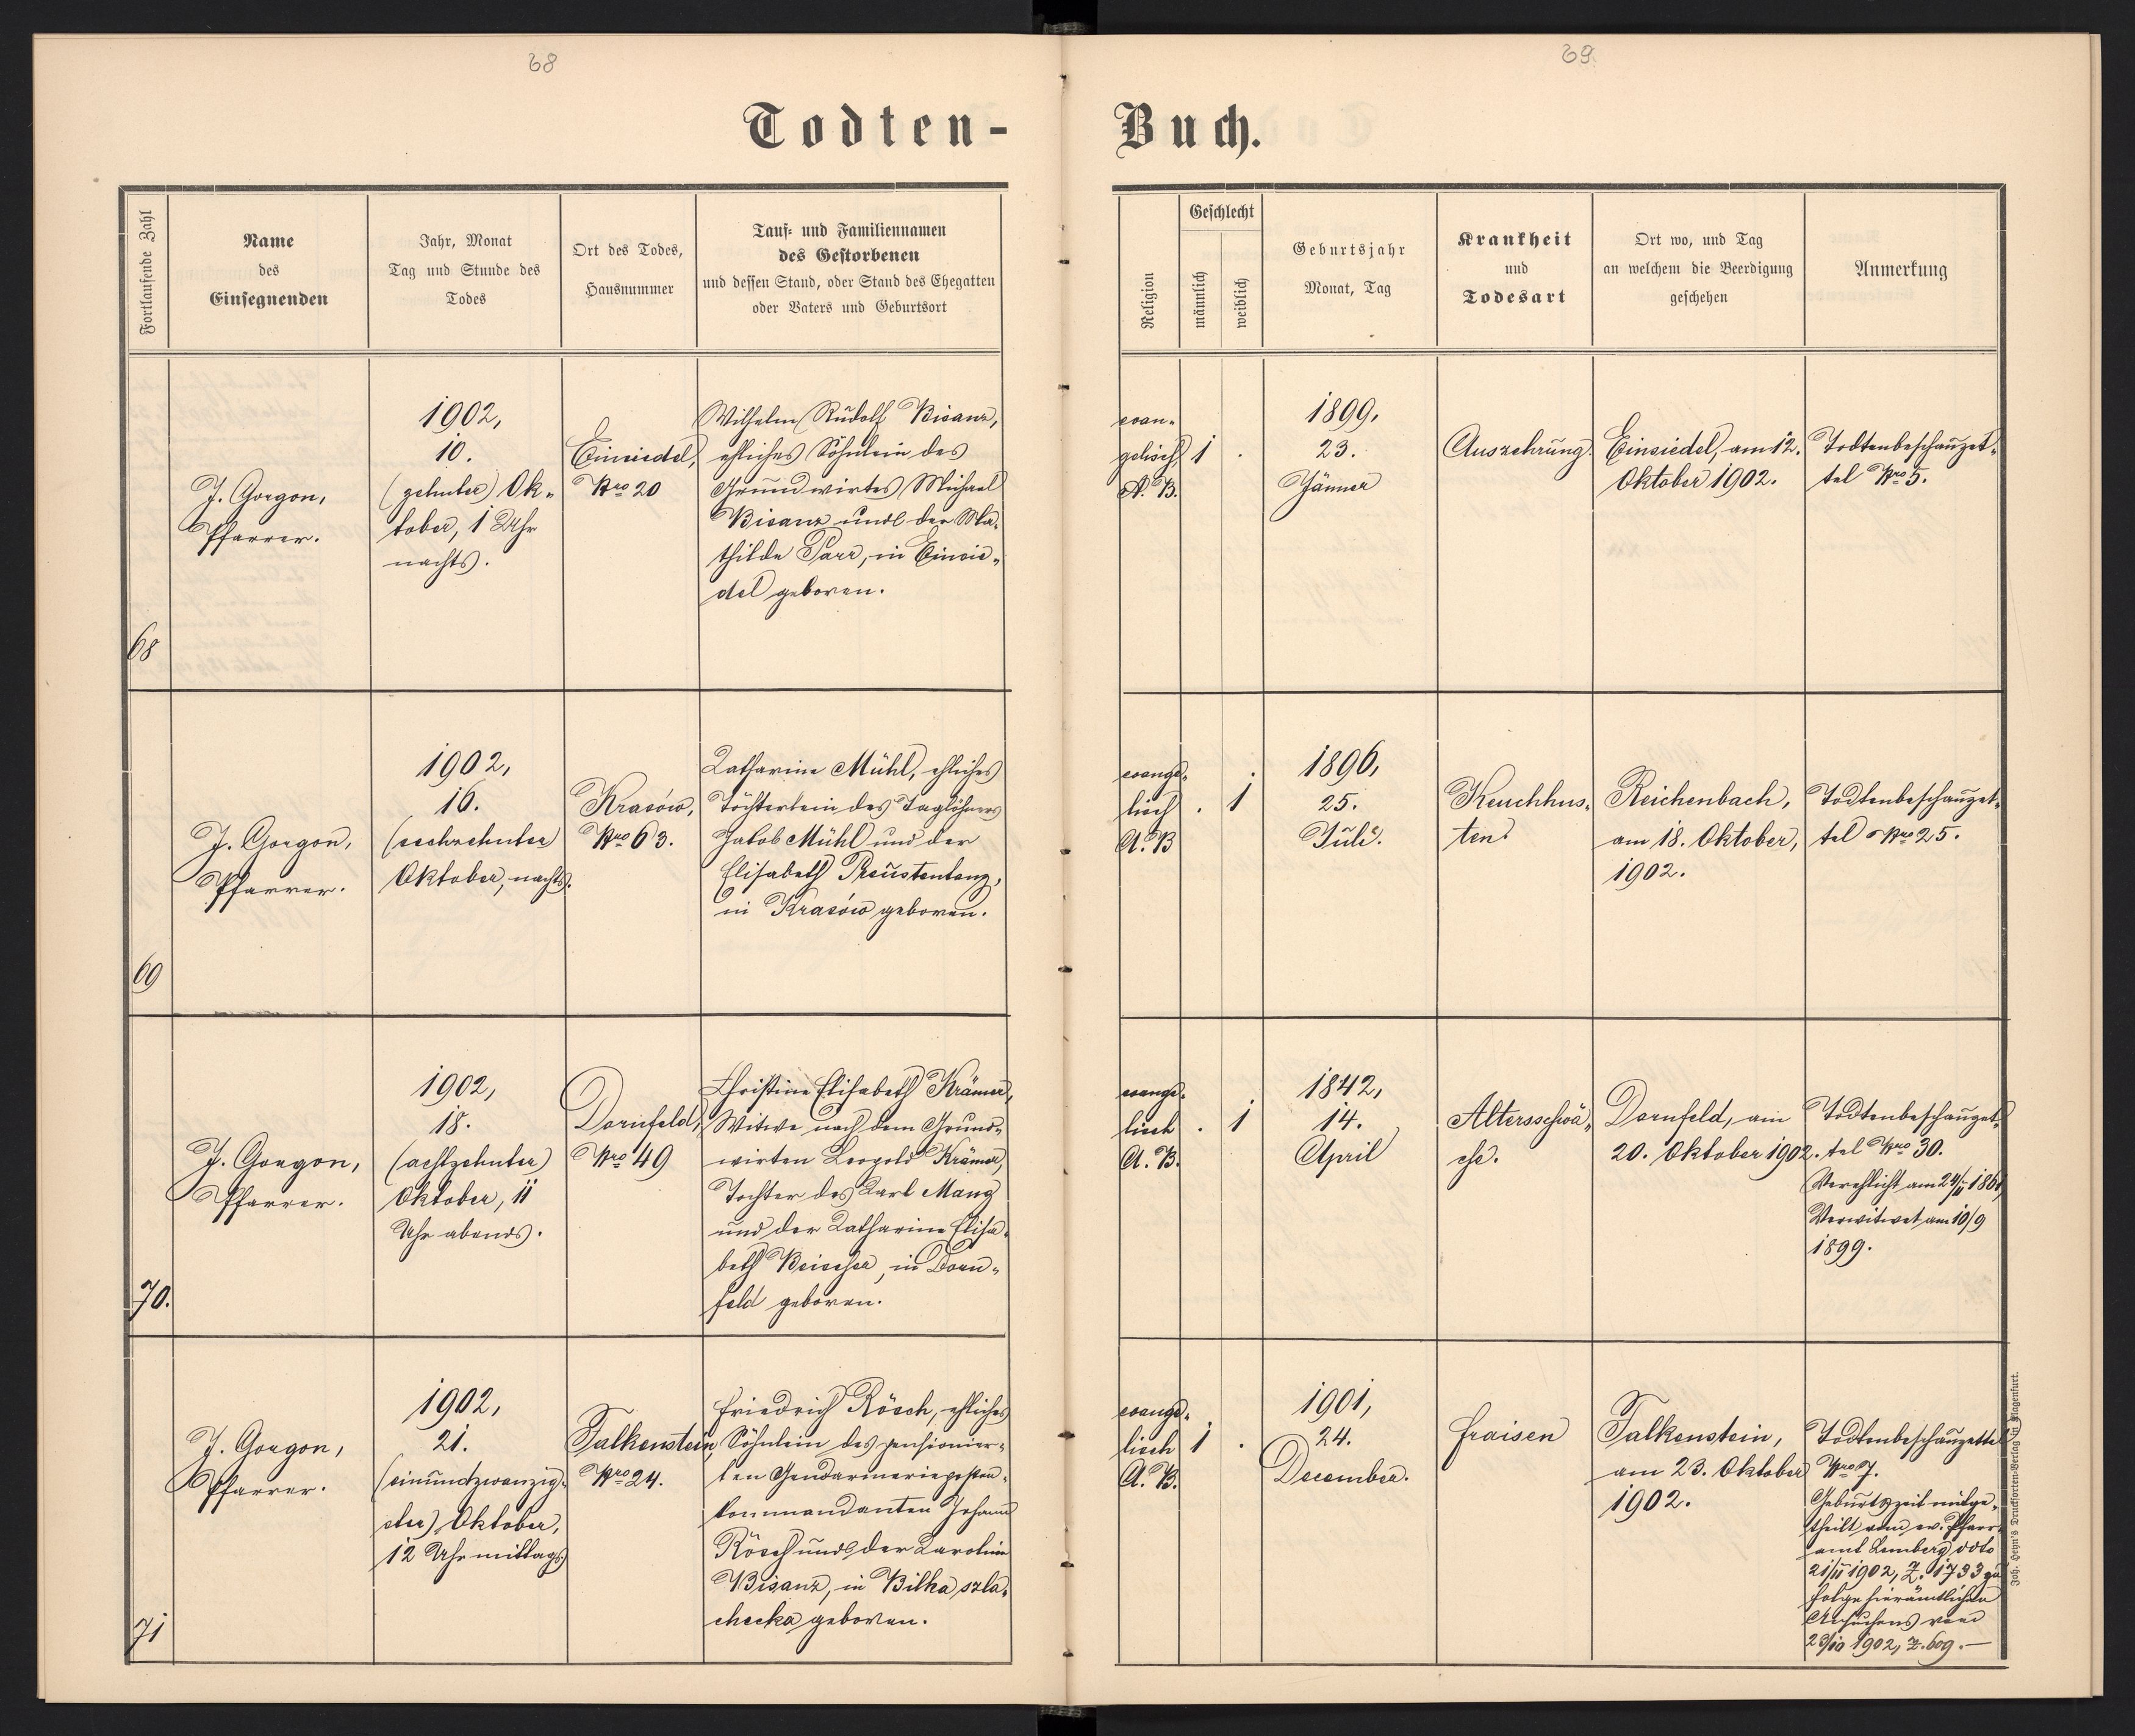 68
69
Todten-
Buch.
Fortlaufende Zahl
Name
des
Einsegnenden
Jahr, Monat
Tag und Stunde des
Todes
Ort des Todes,
Hausnummer
Tauf- und Familiennamen
des Gestorbenen
und dessen Stand, oder Stand des Ehegatten
oder Vaters und Geburtsort
Religion
Geschlecht
männlich
weiblich
Geburtsjahr
Monat, Tag
Krankheit
und
Todesart
Ort wo, und Tag
an welchem die Beerdigung
geschehen
Anmerkung
68
J. Gorgon,
Pfarrer.
1902,
10.
(zehnter) Ok-
tober, 1 Uhr
nachts.
Einsiedel,
Nro 20
Wilhelm Rudolf Bisanz,
ehliches Söhnlein des
Grundwirtes Michael
Bisanz und der Ma-
thilde Parr, in Einsie-
del geboren.
evan-
gelisch
A. B.
1
.
1899,
23.
Jänner
Auszehrung.
Einsiedel, am 12.
Oktober 1902.
Todtenbeschauzet-
tel Nro 5.
69
J. Gorgon,
Pfarrer.
1902,
16.
(sechzehnter
Oktober, nachts.
Krasów,
Nro 63.
Katharina Mühl, ehliches
Töchterlein des Taglöhners
Jakob Mühl und der
Elisabeth
in Krasów geboren.
evange-
lisch
A. B
.
1
1896,
25.
Juli.
Keuchhus-
ten.
Reichenbach,
am 18. Oktober,
1902.
Todtenbeschauzet-
tel Nro 25.
70.
J. Gorgon,
Pfarrer.
1902,
18.
(achtzehnter)
Oktober, 11
Uhr abends.
Dornfeld,
Nro 49
Christine Elisabeth Krämer,
Witwe nach dem Grund-
wirten Leopold Krämer,
Tochter des Karl Mang
und der Katharina Elisa-
beth Beischer, in Dorn-
feld geboren.
evange-
lisch
A. B.
.
1
1842,
14.
April
Altersschwä-
che.
Dornfeld, am
20. Oktober 1902.
Todtenbeschauzet-
tel Nro 30.
Verehlicht am 24/11 1861
Verwitwet am 10/9
1899.
71
J. Gorgon,
Pfarrer.
1902,
21.
(einundzwanzig-
ster) Oktober,
12 Uhr mittags
Falkenstein,
Nro 24.
Friedrich Rösch, ehliches
Söhnlein des pensionier-
ten Gendarmerieposten-
kommandanten Johann
Rösch und der Karoline
Bisanz, in Bilka szla-
checka geboren.
evange-
lisch
A. B.
1
.
1901,
24.
December.
Fraisen
Falkenstein,
am 23. Oktober
1902.
Todtenbeschauzettel
Nro 7.
Geburtszeit mitge-
theilt vom ev. Pfarr-
amt Lemberg ddto
21/11 1902, Z. 1733 zu
folge hierämtlichen
Ansuchens vom
23/10 1902, Z. 609.—
Joh. Heyn's Drucksorten-Verlag in Klagenfurt.